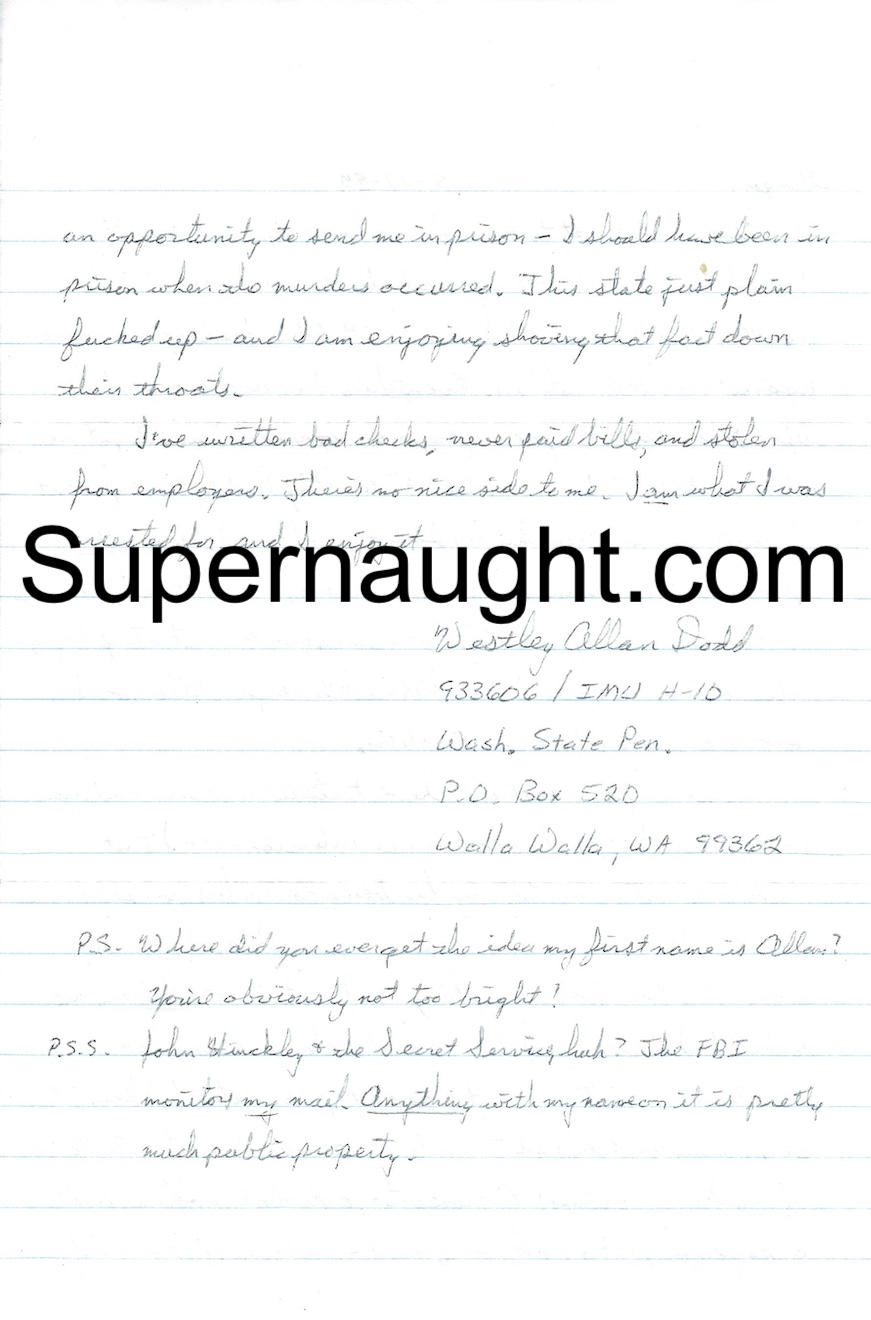 an opportunity to send me in prison – I should have been in
prison when the murders occurred. This state just plain
fucked up – and I am enjoying shoving that fact down
their throats.
I've written bad checks, never paid bills, and stolen
from employers. There's no nice side to me. I am what I was
arrested for and I enjoy it
Supernaught.com
Westley Allan Dodd
933606 / IMU H-10
Wash. State Pen.
P.O. Box 520
Walla Walla, WA 99362
P.S. Where did you ever get the idea my first name is Allan?
You're obviously not too bright!
P.S.S. John Hinckley & the Secret Service, huh? The FBI
monitors my mail. Anything with my name on it is pretty
much public property.